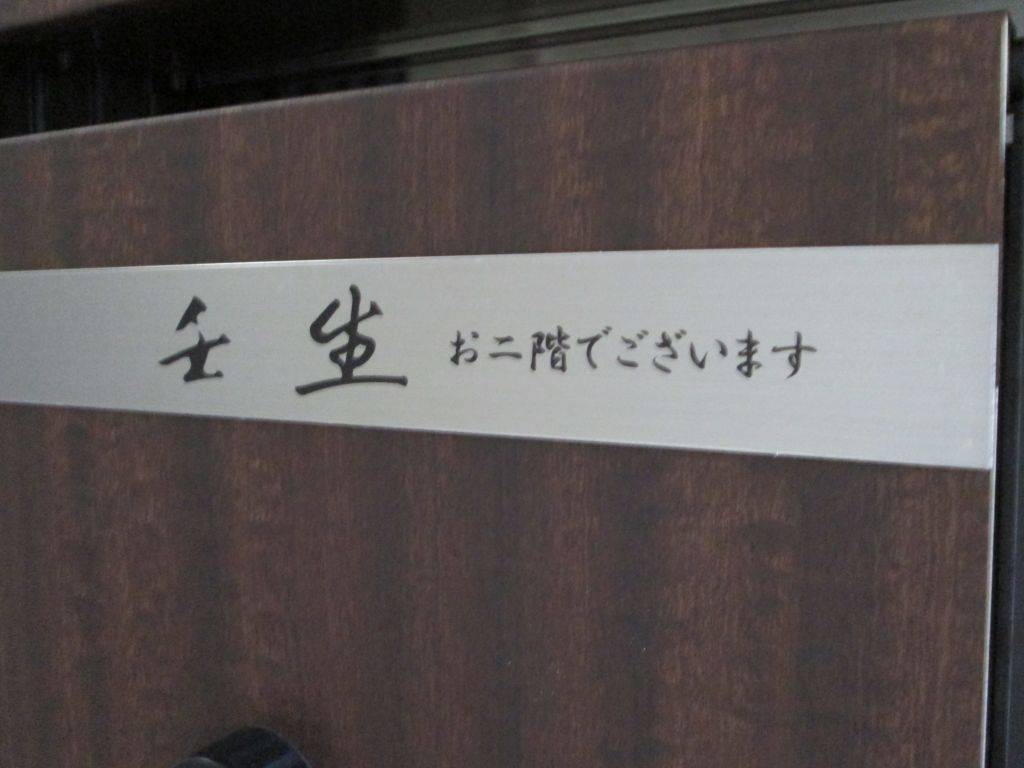 壬生 お二階でございます